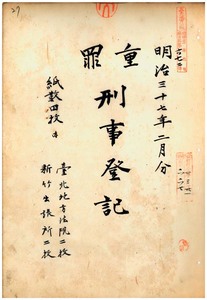 明治三十七年二月分
重罪
刑事登記
紙数四枚
臺北地方法院二枚
新竹出張所二枚
37